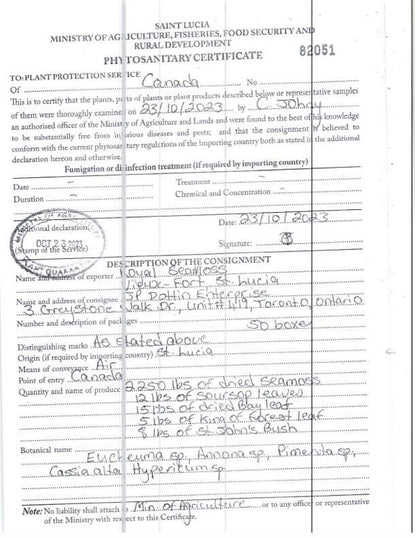 SAINT LUCIA
MINISTRY OF AGRICULTURE, FISHERIES, FOOD SECURITY AND
RURAL DEVELOPMENT
PHYTOSANITARY CERTIFICATE
82051
TO: PLANT PROTECTION SERVICE
Of Canada No
This is to certify that the plants, parts of plants or plant products described below or representative samples
of them were thoroughly examined on 23/10/2023 by C. Johny
an authorised officer of the Ministry of Agriculture and Lands and were found to the best of his knowledge
to be substantially free from injurious diseases and pests; and that the consignment is believed to
conform with the current phytosanitary regulations of the importing country both as stated in the additional
declaration hereon and otherwise.
Fumigation or disinfection treatment (if required by importing country)
Date – Treatment –
Duration – Chemical and Concentration –
Additional declaration:
Date: 23/10/2023
OCT 23 2023
(Stamp of the Service)
Signature:
PLANT QUARANTINE
DESCRIPTION OF THE CONSIGNMENT
Name and address of exporter Royal Seamoss
Vieux-Fort St. Lucia
Name and address of consignee JP Dottin Enterprise
3 Greystone Walk Dr, Unit# 419, Toronto, Ontario
Number and description of packages 50 boxes
Distinguishing marks As stated above
Origin (if required by importing country) St. Lucia
Means of conveyance Air
Point of entry Canada
Quantity and name of produce 2250 lbs of dried seamoss
12 lbs of soursop leaves
15 lbs of dried Bay leaf
5 lbs of King of Forest leaf
8 lbs of St John's Bush
Botanical name
Eucheuma sp, Annona sp, Pimenta sp,
Cassia alta, Hypericum sp
Note: No liability shall attach to Min. of Agriculture or to any officer or representative
of the Ministry with respect to this Certificate.